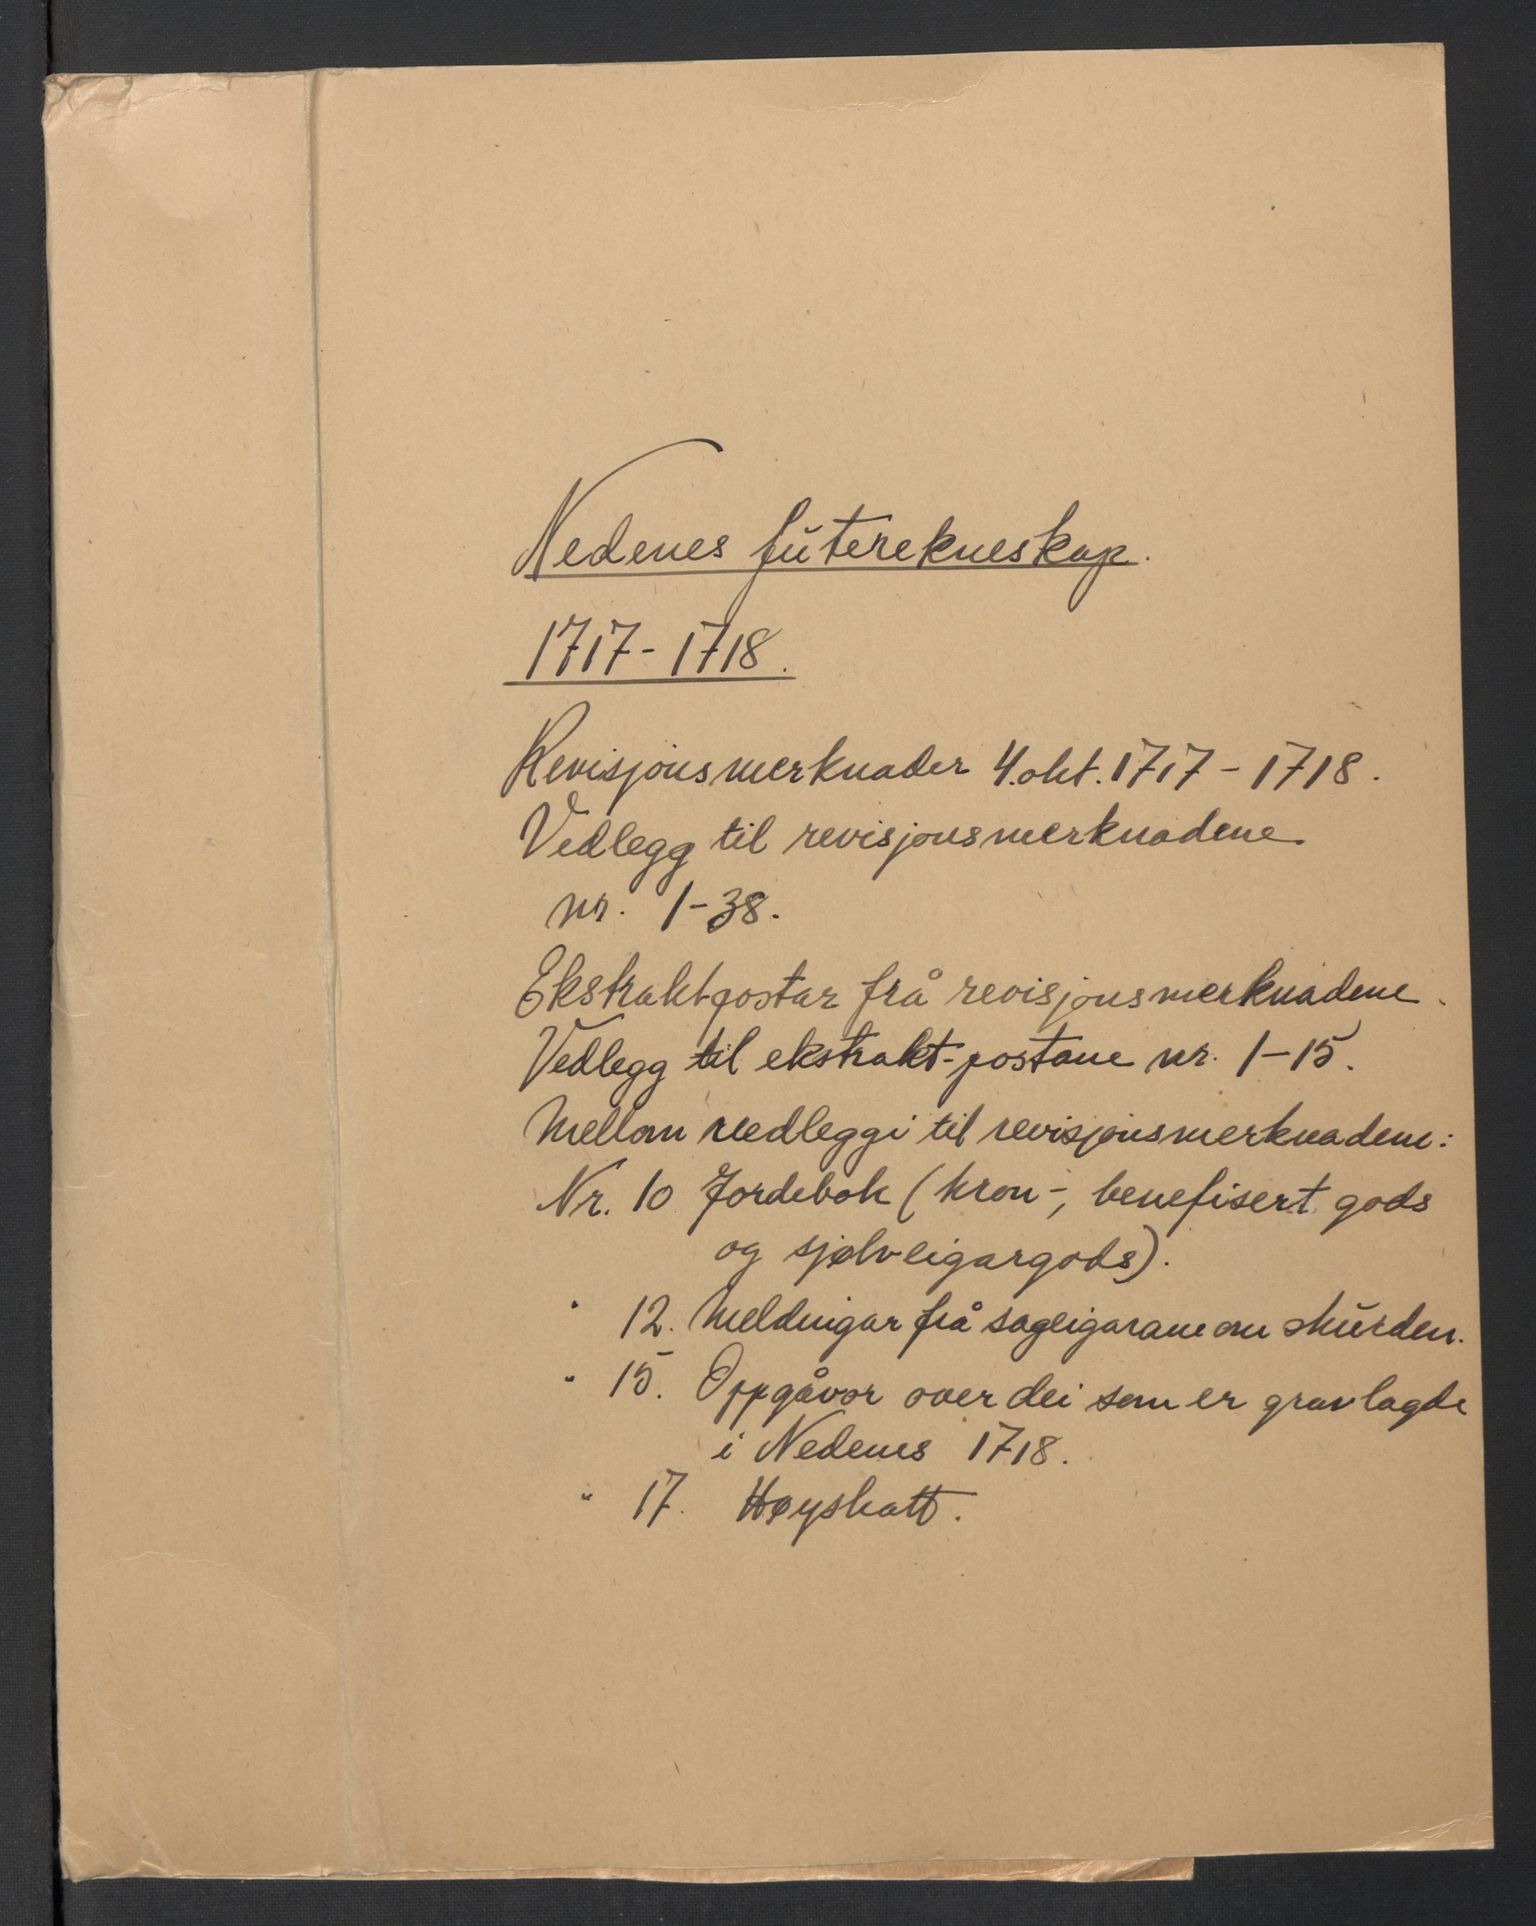 Nedenes futerekneskap.
1717-1718.
Revisjonsmerknader 4.okt. 1717-1718.
Vedlegg til revisjonsmerknadene
nr. 1-38.
Ekstraktpostar frå revisjonsmerknadene.
Vedlegg til ekstrakt-postane nr. 1-15.
Mellom vedleggi til revisjonsmerknadene:
Nr. 10 Jordebok (kron-, benefisert gods
og sjølveigargods).
" 12. Meldingar frå sageigarane om skurden.
" 15. Oppgåvor over dei som er gravlagde
i Nedenes 1718.
" 17. Høyskatt.